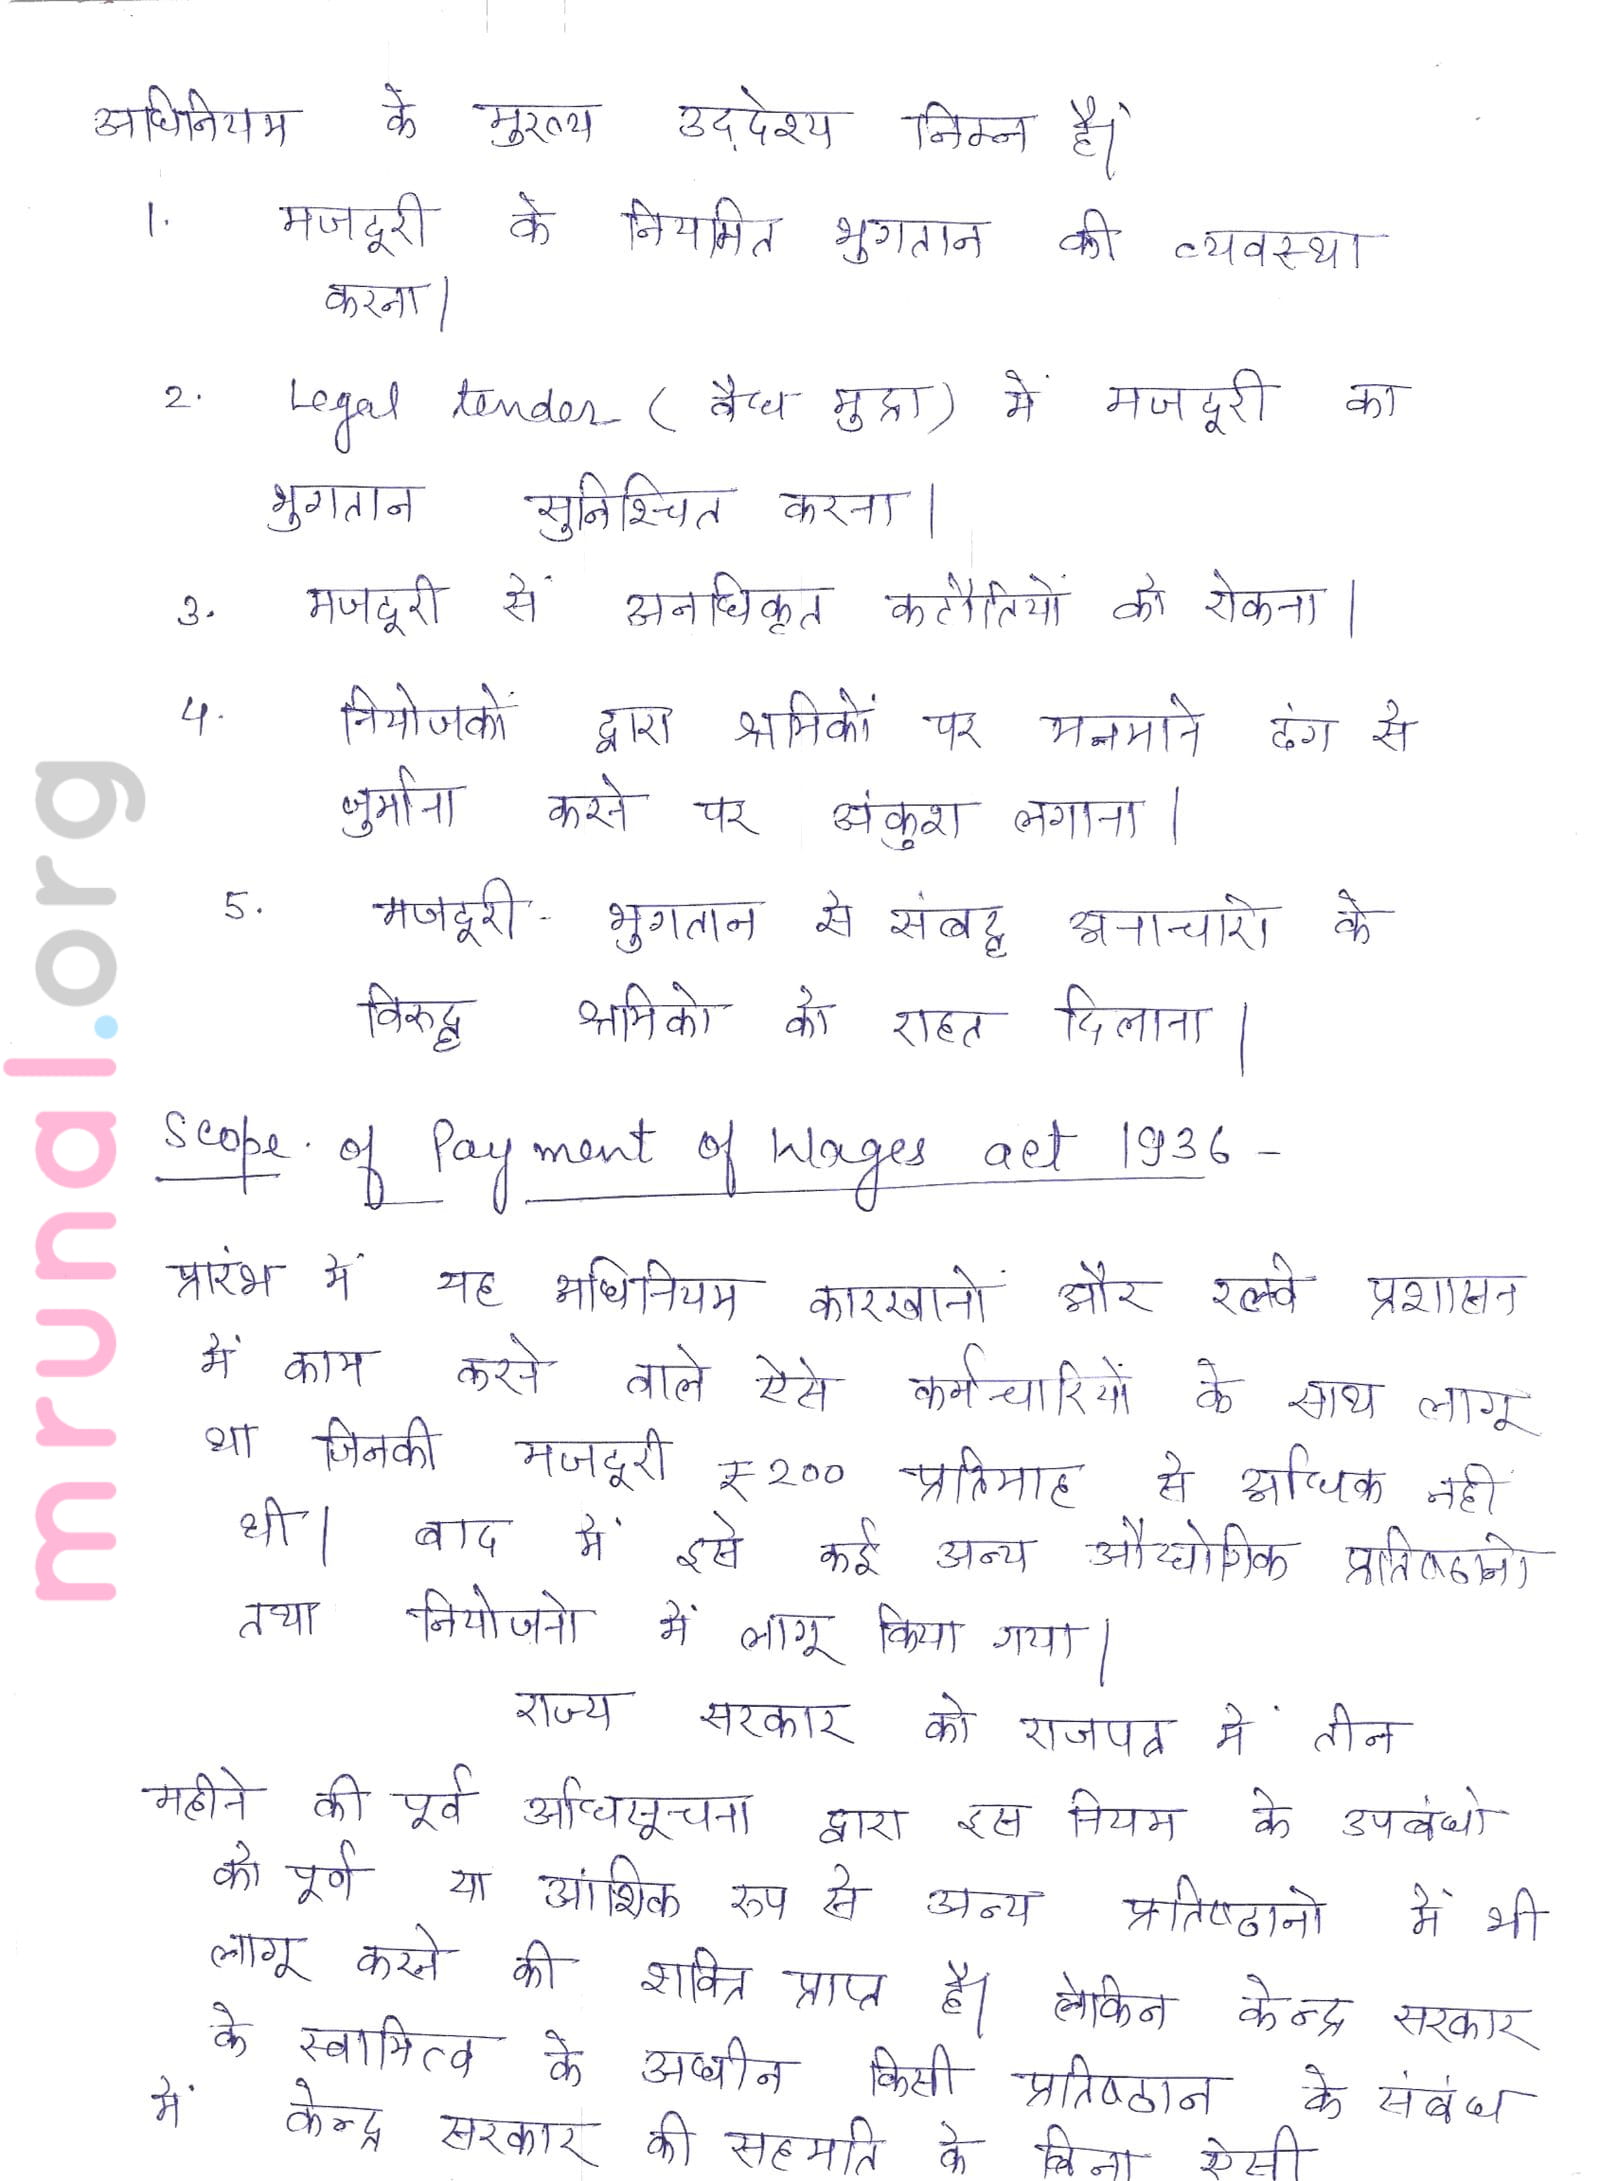 अधिनियम के मुख्य उद्देश्य निम्न हैं।
1. मजदूरी के नियमित भुगतान की व्यवस्था
करना।
2. Legal tender (वैध मुद्रा) में मजदूरी का
भुगतान सुनिश्चित करना।
3. मजदूरी सें अनधिकृत कटौतियों को रोकना।
4. नियोजकों द्वारा श्रमिकों पर मनमाने ढंग से
जुर्माना करने पर अंकुश लगाना।
5. मजदूरी - भुगतान से संबद्ध अनाचारो के
विरुद्ध श्रमिको को राहत दिलाना।
Scope of Payment of Wages act 1936 -
प्रारंभ में यह अधिनियम कारखानों और रलवे प्रशासन
में काम करने वाले ऐसे कर्मचारियों के साथ लागू
था जिनकी मजदूरी ₹200 प्रतिमाह से अधिक नहीं
थी। बाद में इसे कई अन्य औद्योगिक प्रतिष्ठानो
तथा नियोजनो में लागू किया गया।
राज्य सरकार को राजपत्र में तीन
महीने की पूर्व अधिसूचना द्वारा इस नियम के उपबंधो
को पूर्ण या आंशिक रूप से अन्य प्रतिष्ठानो में भी
लागू करने की शक्ति प्राप्त है। लेकिन केन्द्र सरकार
के स्वामित्व के अधीन किसी प्रतिष्ठान के संबंध
में केन्द्र सरकार की सहमति के बिना ऐसी
mrunal.org